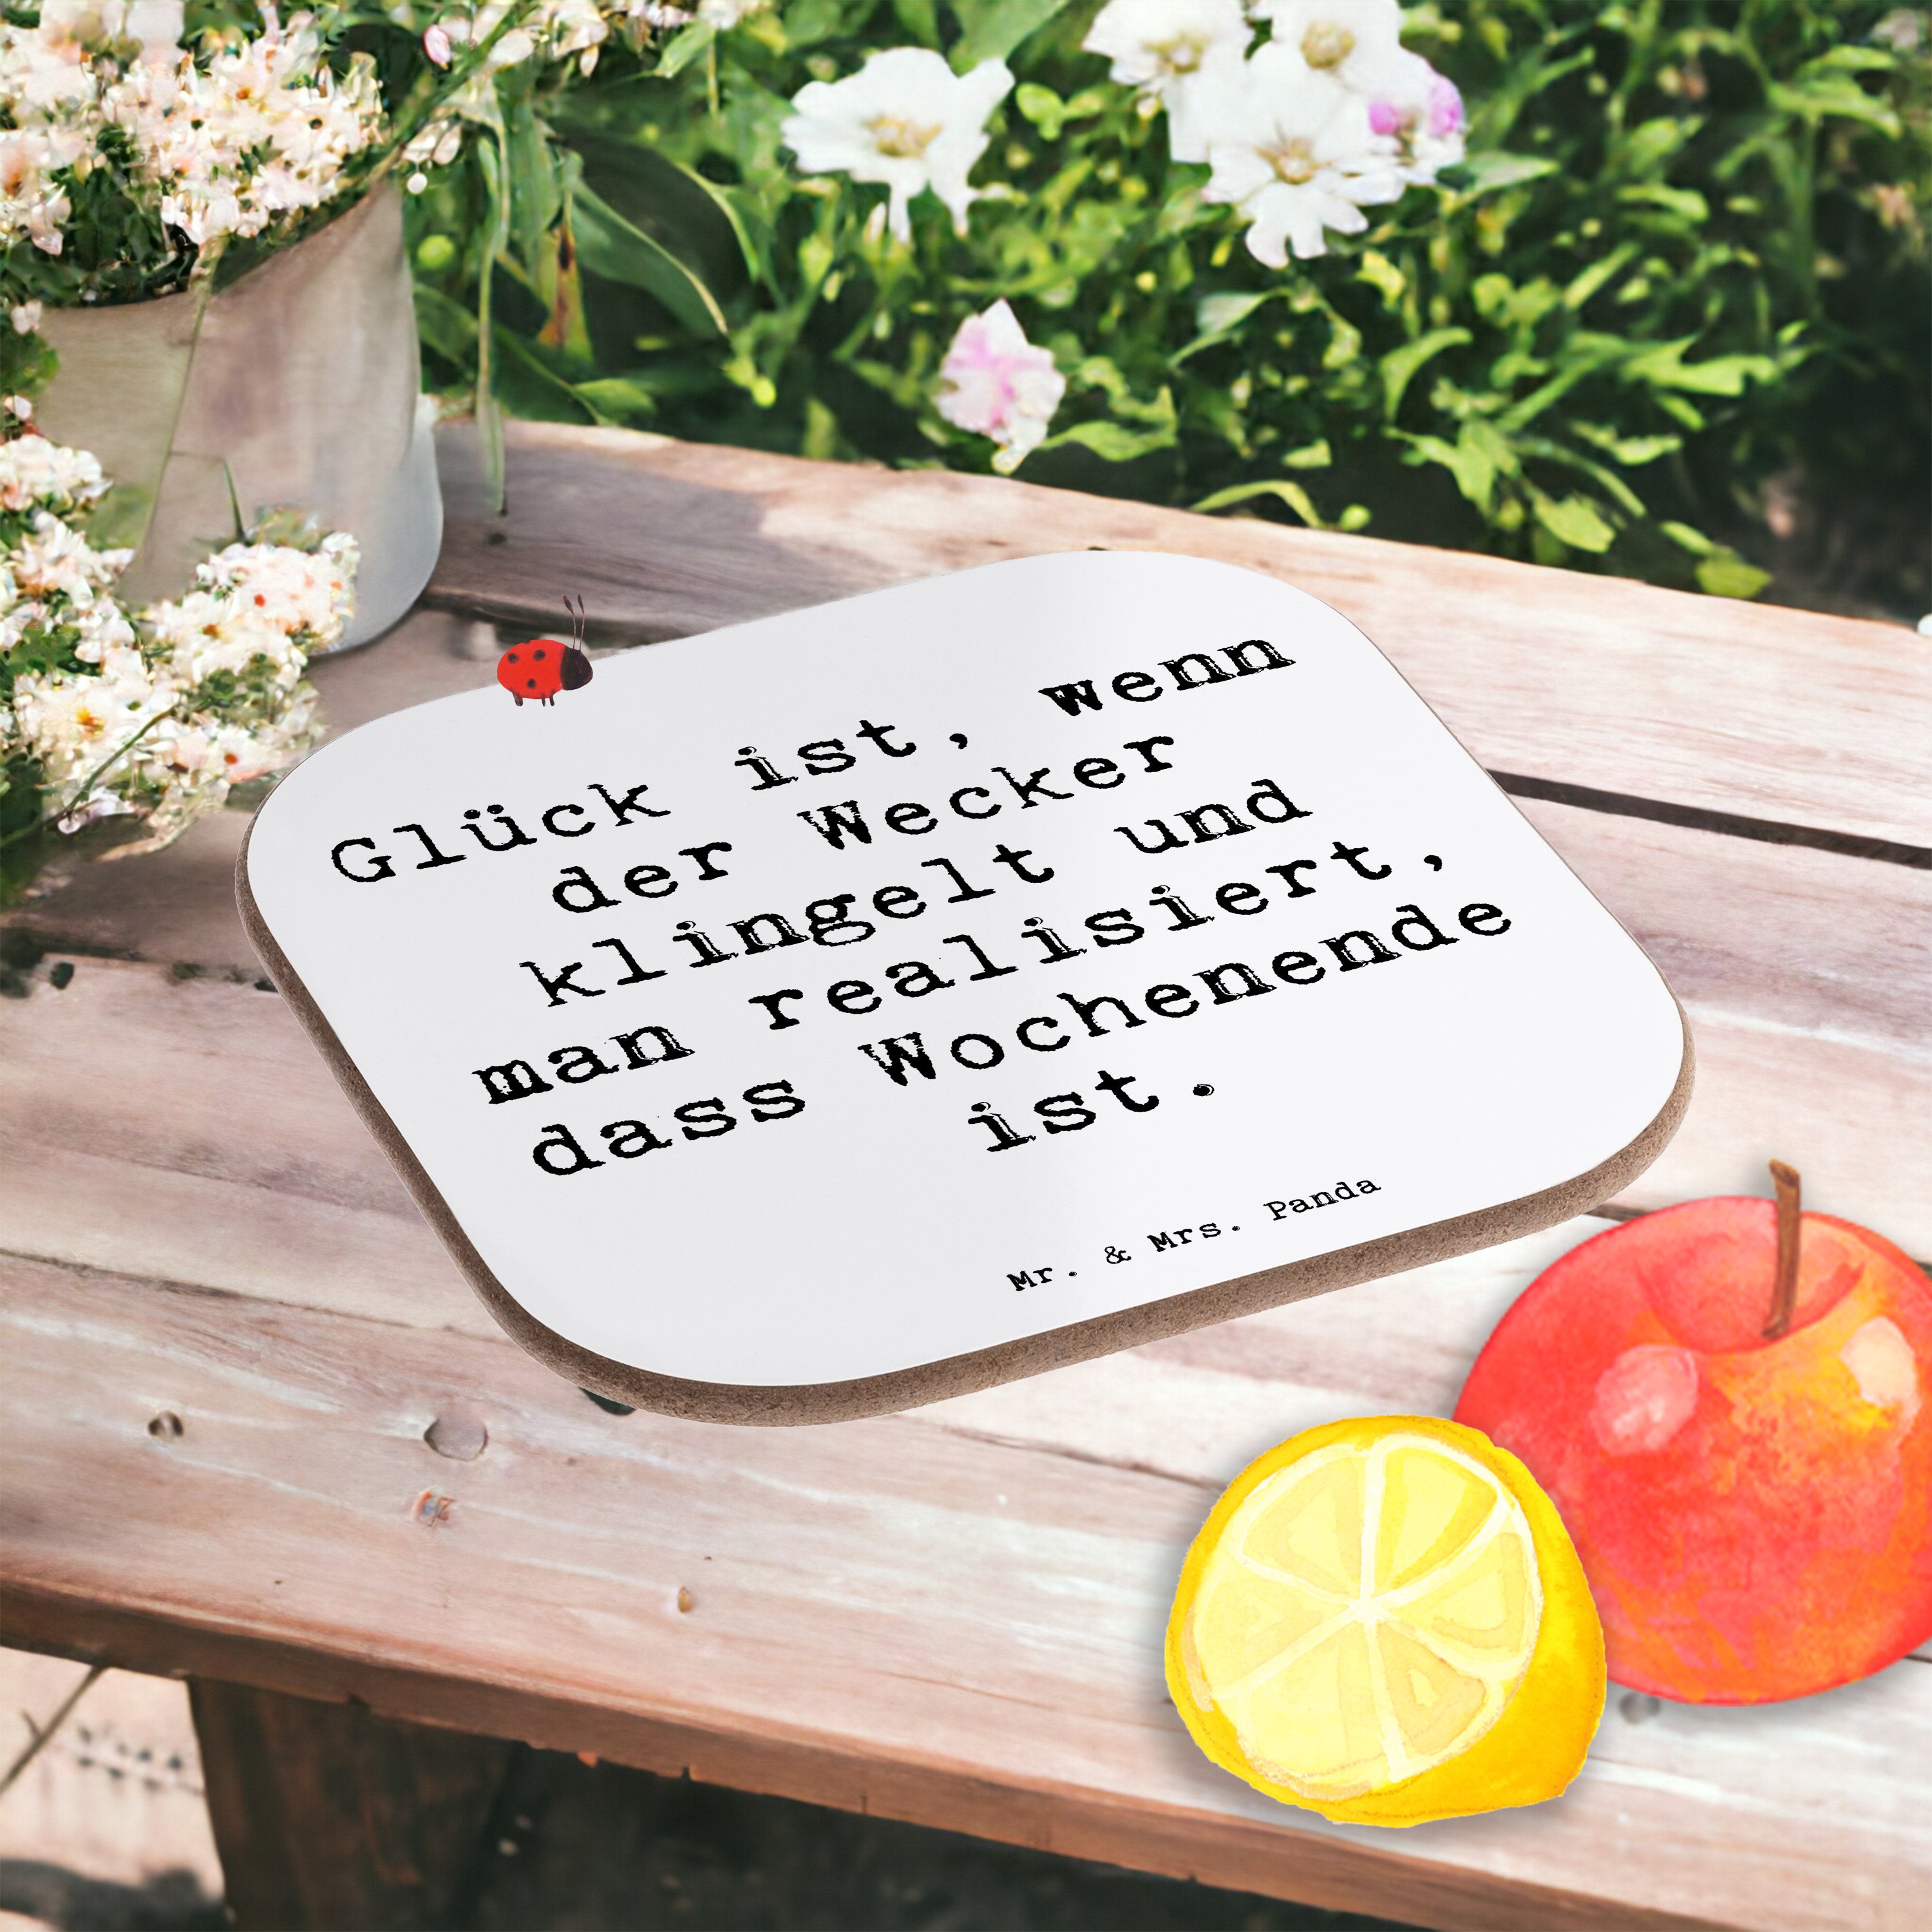 Glück ist, wenn
der Wecker
klingelt und
man realisiert,
dass Wochenende
ist.
Mr. & Mrs. Panda